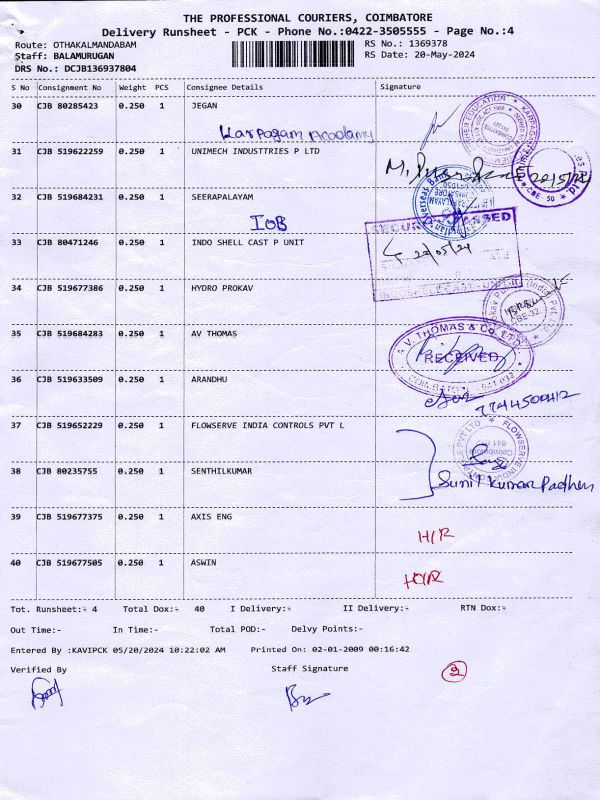 THE PROFESSIONAL COURIERS, COIMBATORE
Delivery Runsheet - PCK - Phone No.:0422-3505555 - Page No.:4
Route: OTHAKALMANDABAM RS No.: 1369378
Staff: BALAMURUGAN RS Date: 20-May-2024
DRS No.: DCJB136937804
S No Consignment No Weight PCS Consignee Details Signature
30 CJB 80285423 0.250 1 JEGAN
Karpagam Academy
31 CJB 519622259 0.250 1 UNIMECH INDUSTTRIES P LTD
32 CJB 519684231 0.250 1 SEERAPALAYAM
IOB
33 CJB 80471246 0.250 1 INDO SHELL CAST P UNIT
22/05/24
34 CJB 519677386 0.250 1 HYDRO PROKAV
35 CJB 519684283 0.250 1 AV THOMAS
A. V. THOMAS & Co. LTD.
RECEIVED
36 CJB 519633509 0.250 1 ARANDHU
7744500412
37 CJB 519652229 0.250 1 FLOWSERVE INDIA CONTROLS PVT L
38 CJB 80235755 0.250 1 SENTHILKUMAR
Sunil Kumar Padhen
39 CJB 519677375 0.250 1 AXIS ENG
H/R
40 CJB 519677505 0.250 1 ASWIN
Tot. Runsheet:- 4 Total Dox:- 40 I Delivery:- II Delivery:- RTN Dox:-
Out Time:- In Time:- Total POD:- Delvy Points:-
Entered By :KAVIPCK 05/20/2024 10:22:02 AM Printed On: 02-01-2009 00:16:42
Verified By Staff Signature
2